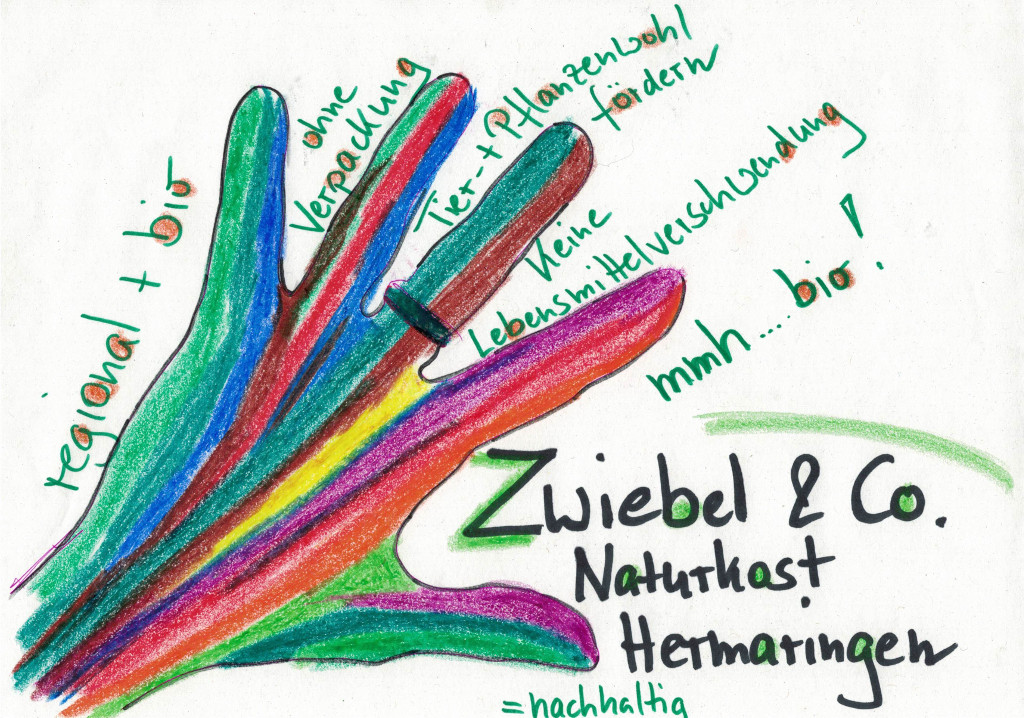 regional + bio
ohne
Verpackung
Tier- + Pflanzenwohl
fördern
Keine
Lebensmittelverschwendung
mmh.... bio!
Zwiebel & Co.
Naturkost
Hermaringen
=nachhaltig